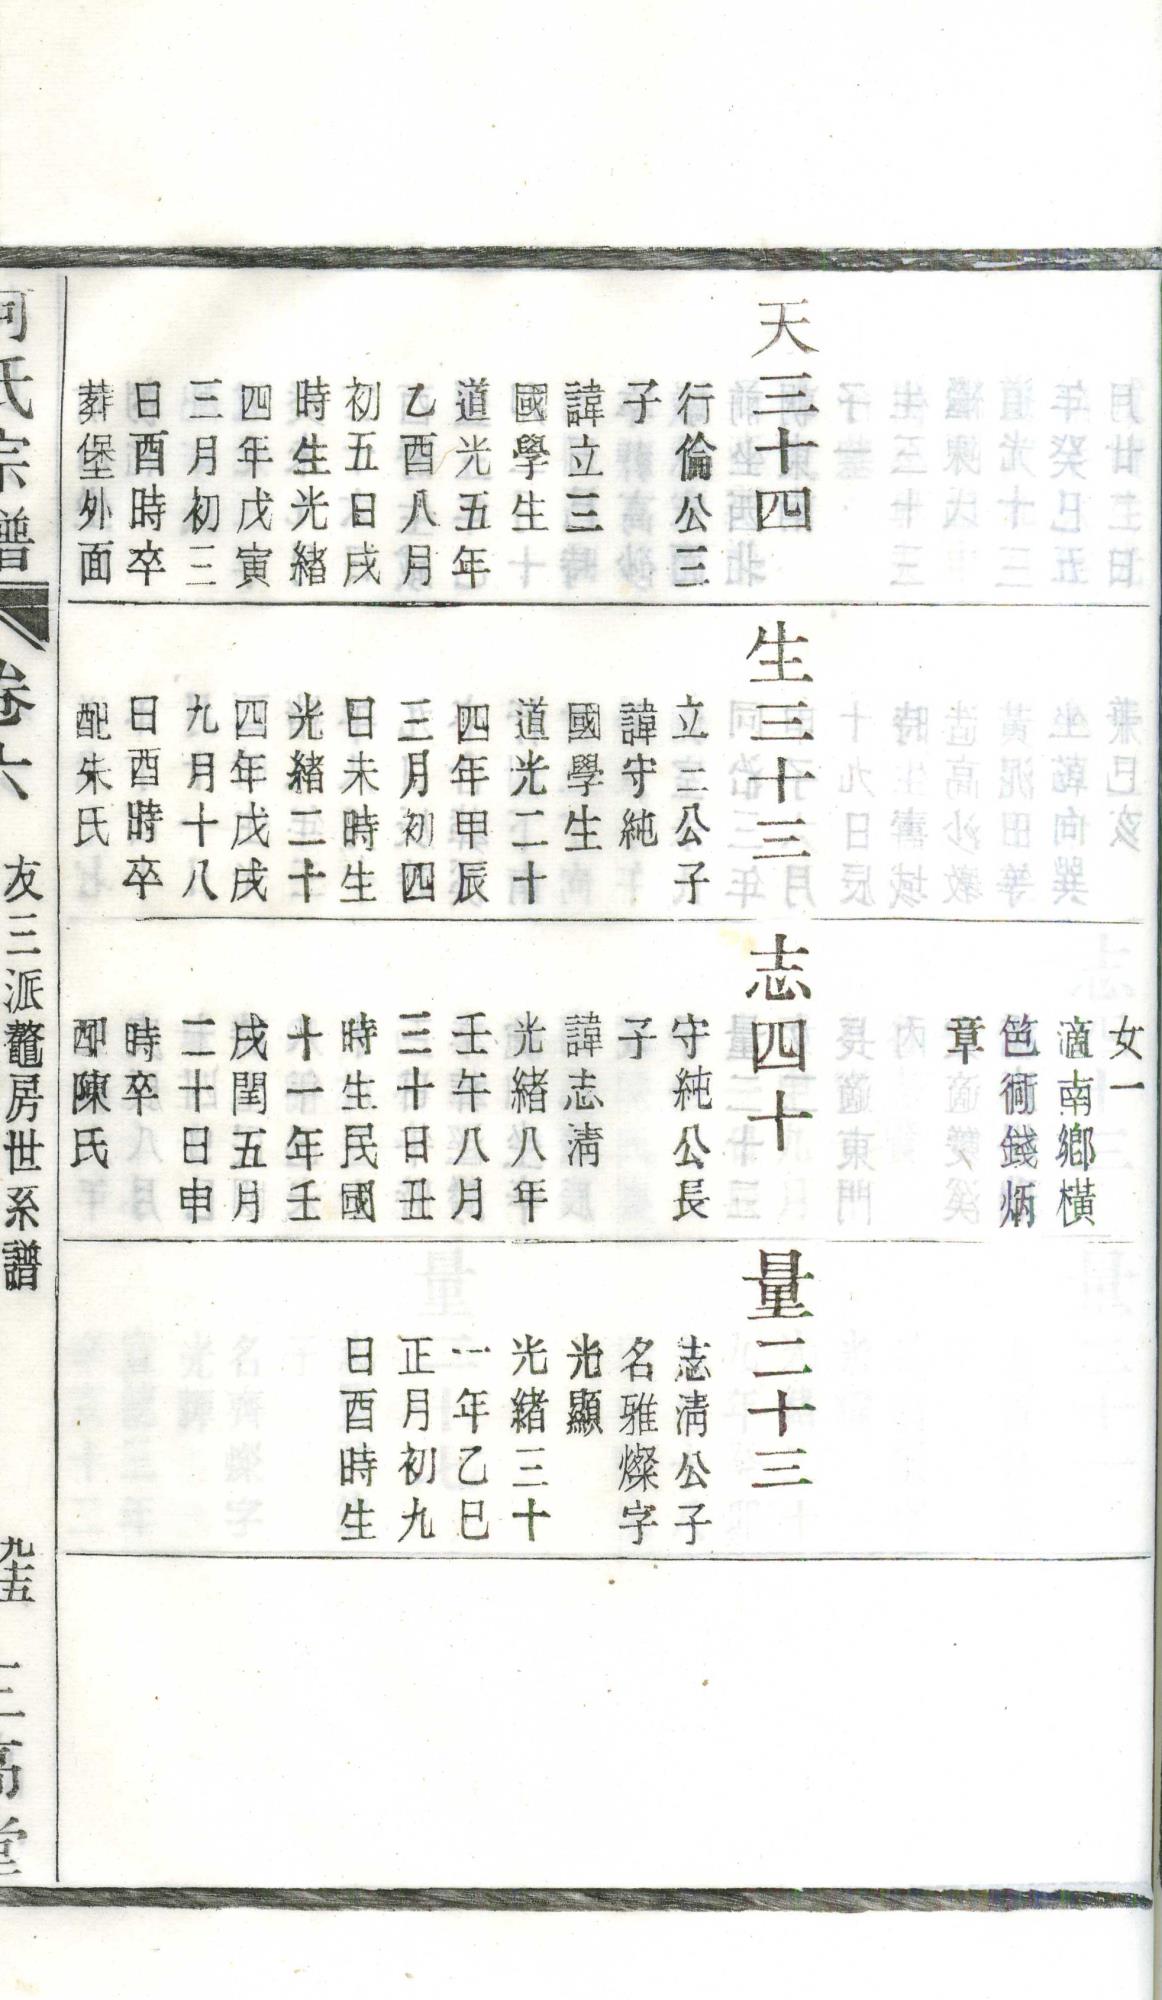 女一
適南鄉橫
笆衕錢炳
章
天三十四
行倫公三
子
諱立三
國學生
道光五年
乙酉八月
初五日戌
時生光緒
四年戊寅
三月初三
日酉時卒
葬堡外面
生三十三
立三公子
諱守純
國學生
道光二十
四年甲辰
三月初四
日未時生
光緒二十
四年戊戌
九月十八
日酉時卒
配朱氏
志四十
守純公長
子
諱志淸
光緒八年
壬午八月
三十日丑
時生民國
十一年壬
戌閏五月
二十日申
時卒
配陳氏
量二十三
志淸公子
名雅燦字
光顯
光緒三十
一年乙巳
正月初九
日酉時生
何氏宗譜 卷六 友三派鼇房世系譜 九十五 三高堂